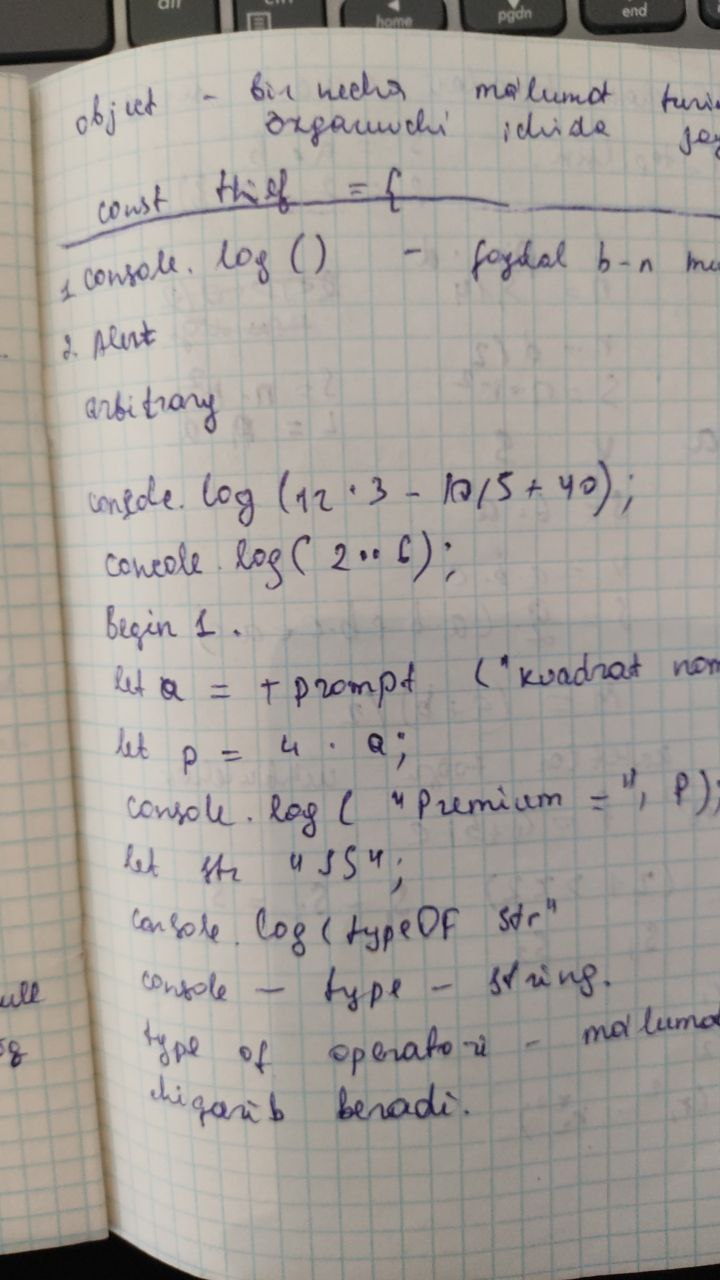 home
pgdn
end
object - bir necha ma'lumot
ichida
const thief = {
1 console. log () - foydal b-n
2. Alert
arbitrary
console. log (12 * 3 - 10/5 + 40);
console. log( 2 ** 6);
Begin 1.
let a = + prompt ("kvadrat
let p = 4 . a;
console. log ( "Premium =", P);
let str "SS";
console. log (typeOF str"
console - type - string.
type of operatori - ma'lumot
chiqarib beradi.